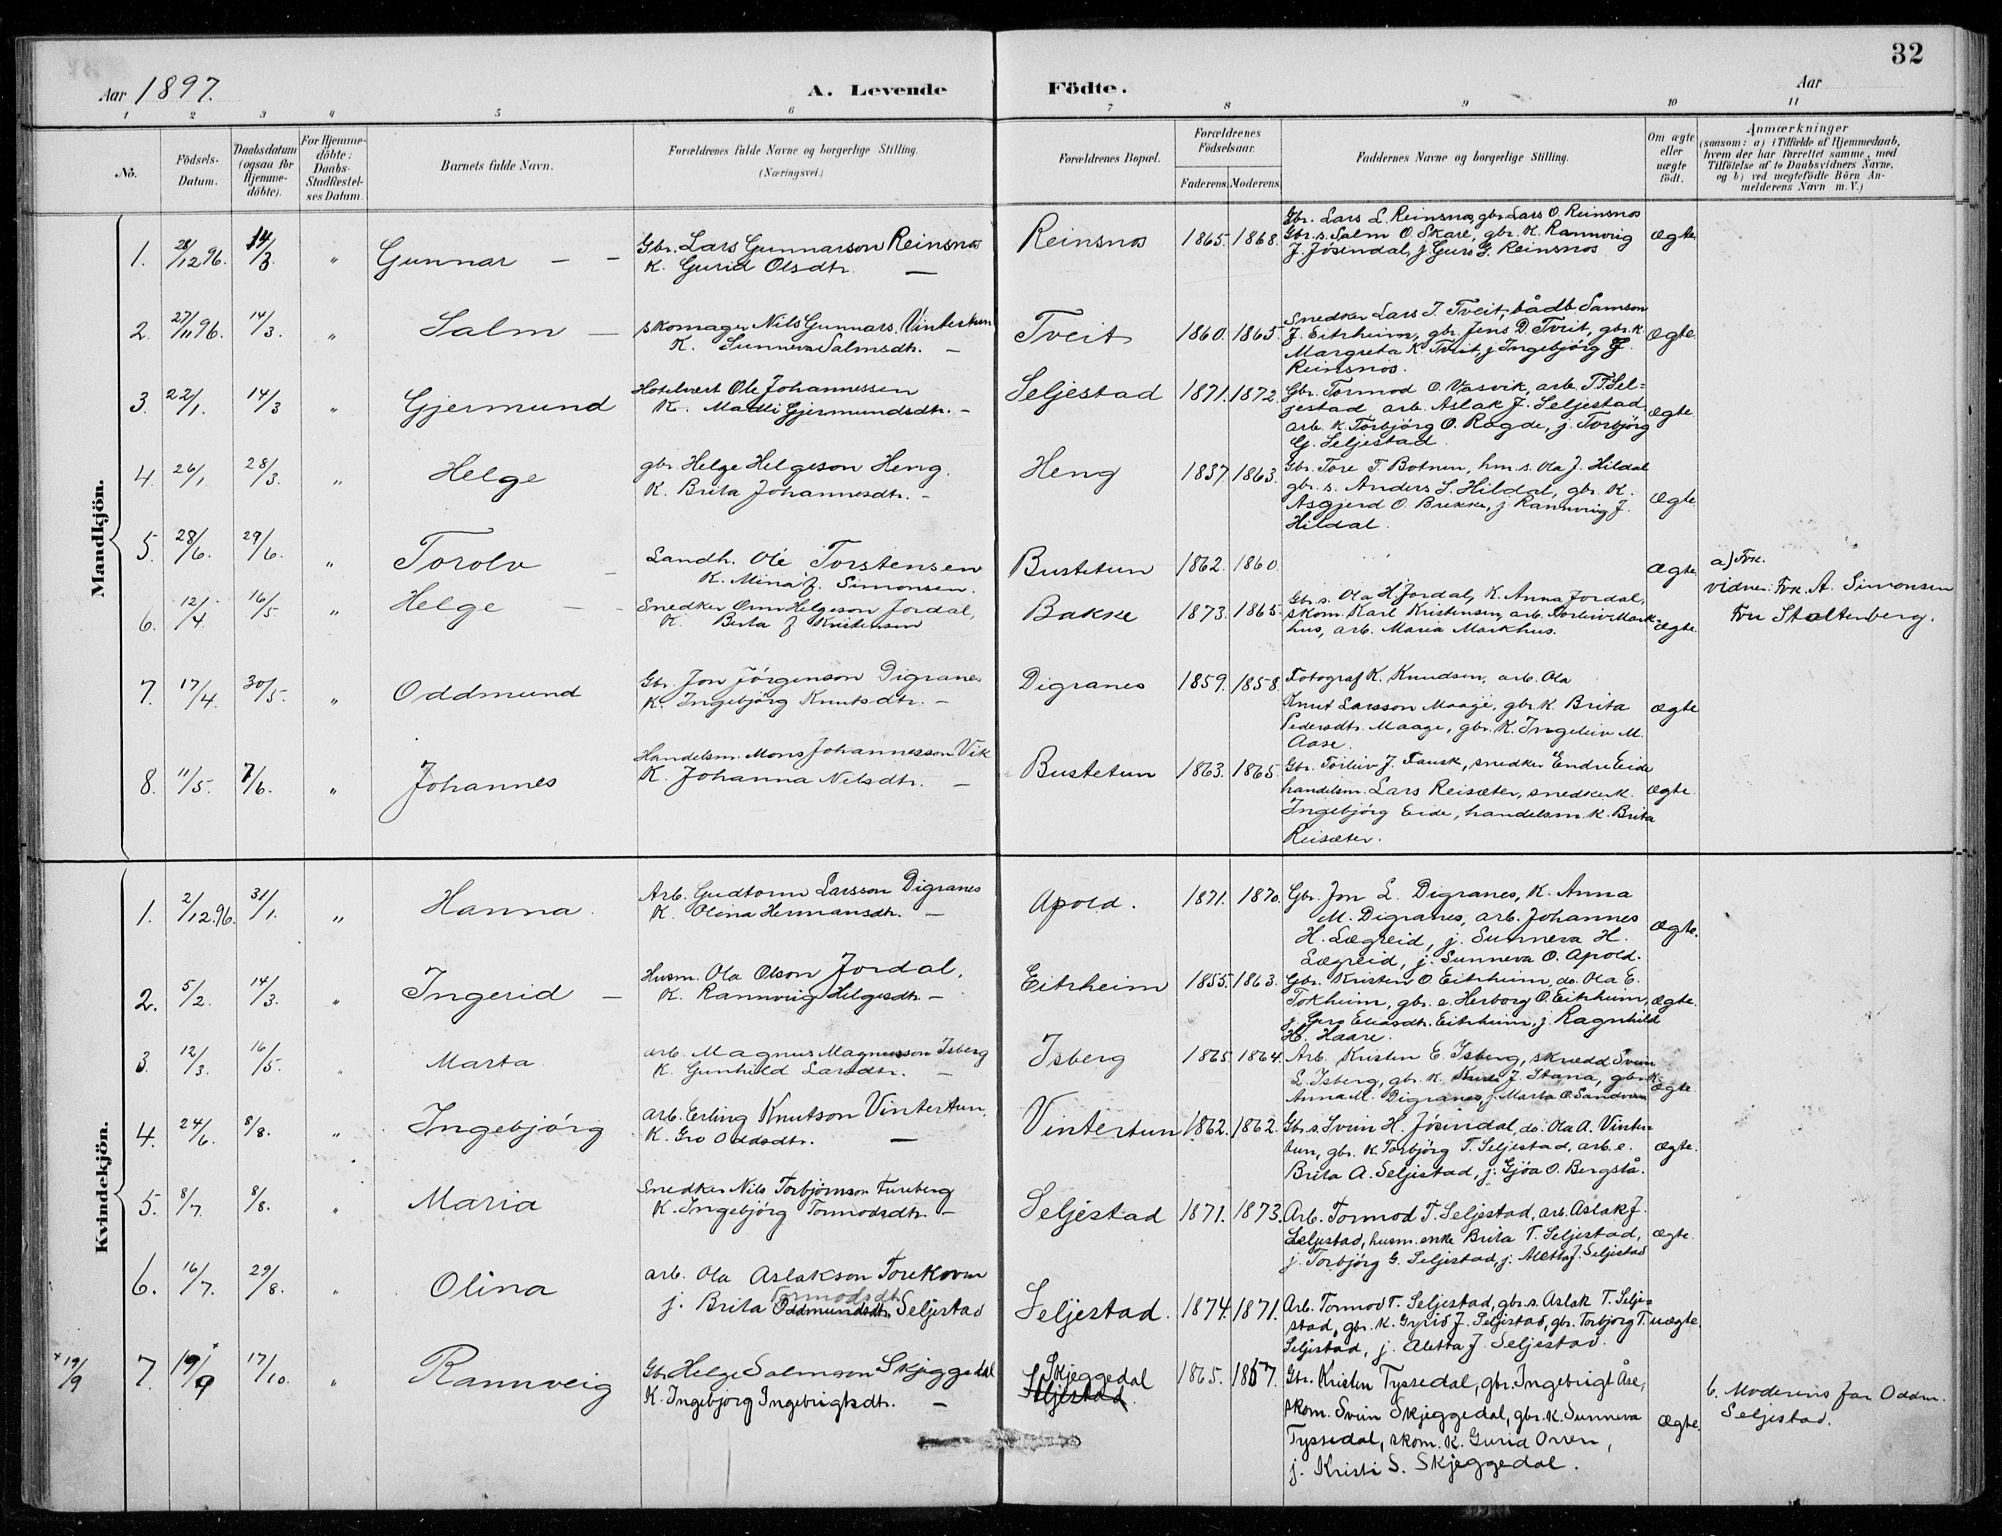 32
Aar 1897.
A. Levende Födte.
Aar
1 2 3 4 5 6 7 8 9 10 11
No.
Födsels-Datum.
Daabsdatum (ogsaa for Hjemme-döbte).
For Hjemme-döbte: Daabs-Stadfæstel-ses Datum.
Barnets fulde Navn.
Forældrenes fulde Navne og borgerlige Stilling. (Næringsvei.)
Forældrenes Bopæl.
Forældrenes Födselsaar.
Faderens. Moderens.
Faddernes Navne og borgerlige Stilling.
Om ægte eller uægte födt.
Anmærkninger
(saasom: a) i Tilfælde af Hjemmedaab,
hvem der har forrettet samme, med
Tilföielse af to Daabsvidners Navne,
og b) ved uægtefödte Börn An-
melderens Navn m. V.)
Mandkjön.
1. 28/12 96. 14/3. " Gunnar — —
Gbr. Lars Gunnarson Reinsnos
K. Gurid Olsdtr. —
Reinsnos 1865. 1868.
Gbr. Lars L. Reinsnos, gbr. Lars O. Reinsnos
Gbr. s. Salm O. Skare, gbr. K. Rannvrig
J. Jösendal, j. Guro G. Reinsnos
Ægte
2. 27/11 96. 14/3. " Salm —
Skomager Nils Gunnars. Vintertun
K. Sunneva Salmsdtr. —
Tveit 1860. 1865.
Snedker Lars I. Tveit, bådb. Samson
J. Eitrheim, gbr. Jens D. Tveit, gbr. K.
Margreta K. Tveit, j. Ingebjörg G.
Reinsnos.
Ægte.
3. 22/1. 14/3 " Gjermund
Hotelvært Ole Johannessen
K. Madli Gjermundsdtr. —
Seljestad 1871. 1872.
Gbr. Tormod O. Vasvik, arb. T. T. Sel-
jestad, arb. Aslak J. Seljestad,
arb. K. Torbjörg O. Ragde, j. Torbjörg
G. Seljestad.
Ægte
4. 26/1. 28/3. " Helge
gbr. Helge Helgeson Heng.
K. Brita Johannesdtr. —
Heng 1837. 1863.
Gbr. Tore T. Botnen, hm. s. Ola J. Hildal
gbr. s. Anders S. Hildal, gbr. K.
Asgjerd O. Brekke, j. Rannvrig J.
Hildal.
Ægte
5. 28/6. 29/6. " Torolv —
Landh. Ole Torstensen
K. Mina f. Simonsen.
Bustetun 1862. 1860.
Ægte
a) Frk.
vidner: Frk. A. Simonsen
Fru Stoltenberg.
6. 12/4. 16/5. " Helge — —
Snedker Orm Helgeson Jordal,
K. Berta f. Kristensen
Bakke 1873. 1865.
Gbr. s. Ola H. Jordal, K. Anna Jordal,
skom. Karl Kristensen, arb. Torleiv Mark-
hus, arb. Maria Markhus.
Ægte.
7. 17/4. 30/5. " Oddmund
Gbr. Jon Jörgenson Digranes
K. Ingebjörg Knutsdtr. —
Digranes 1859. 1858.
Fotograf K. Knudsen, arb. Ola
Knut Larsson Maage, gbr. K. Brita
Pedersdtr. Maage, gbr. K. Ingeleiv M.
Aase.
Ægte
8. 11/5. 7/6. " Johannes
Handelsm. Mons Johannesson Vik
K. Johanna Nilsdtr. —
Bustetun 1863. 1865.
Gbr. Torleiv J. Fausk, snedker Endre Eide
handelsm. Lars Reisæter, snedker K.
Ingebjörg Eide, handelsm. K. Brita
Reisæter.
Ægte.
Kvindekjön.
1. 2/12.96. 31/1. " Hanna.
Arb. Gudtorm Larsson Digranes
K. Olina Hermansdtr. —
Apold. 1871. 1870.
Gbr. Jon L. Digranes, K. Anna
M. Digranes, arb. Johannes
H. Lægreid, j. Sunneva H.
Lægreid, j. Sunneva O. Apold.
Ægte.
2. 5/2. 14/3. " Ingerid —
Husm. Ola Olson Jordal,
K. Rannvrig Helgesdtr. —
Eitrheim 1855. 1863.
Gbr. Kristen O. Eitrheim, do. Ola E.
Tokheim, gbr. e. Herborg O. Eitrheim,
j. Gro Eliasdtr. Eitrheim, j. Ragnhild
H. Haare.
Ægte.
3. 12/3. 16/5. " Marta
arb. Magnus Magnusson Isberg
K. Gunhild Larsdtr. —
Isberg 1865 1864.
Arb. Kristen E. Isberg, skrædd. Svein
L. Isberg, gbr. K. J. Stana, gbr. K.
Anna M. Digranes, j. Marta O. Sandven
Ægte
4. 24/6. 8/8. " Ingebjörg
arb. Erling Knutson Vintertun.
K. Gro Oddsdtr. —
Vintertun 1862. 1862.
Gbr. s. Svein H. Jösendal, do. Ola A. Vinter-
tun, gbr. K. Torbjörg T. Seljestad, arb. e.
Brita A. Seljestad, j. Gjöa O. Bergstå.
Ægte.
5. 8/7. 8/8. " Maria
Snedker Nils Torbjörnson Fureberg
K. Ingebjörg Tormodsdtr. —
Seljestad 1871. 1873.
Arb. Tormod T. Seljestad, arb. Aslak J.
Seljestad, husm. enke Brita T. Seljestad,
j. Torbjörg G. Seljestad, j. Aletta J. Seljestad
Ægte.
6. 16/7. 29/8. " Olina
arb. Ola Aslakson Torekoven
Tormodsdt.
j. Brita Oddmundsdtr. Seljestad
Seljestad. 1874. 1871.
Arb. Tormod T. Seljestad, gbr. s. Aslak T. Selje-
stad, gbr. K. Gyrid J. Seljestad, gbr. Torbjörg T.
Seljestad, j. Aletta J. Seljestad.
uægte.
+ 19/9 7. 19/9 + 17/10. " Rannveig
Gbr. Helge Salmson Skjeggedal
K. Ingebjorg Ingebrigtsdtr. —
Skjeggedal
Seljestad. 1865. 1867.
Gbr. Kristen Tyssedal, gbr. Ingebrigt Åse,
skom. Svein Skjeggedal, gbr. K. Sunneva
Tyssedal, skom. K. Gurid Orren,
j. Kristi S. Skjeggedal.
Ægte.
b. Moderens far Oddm.
Seljestad.